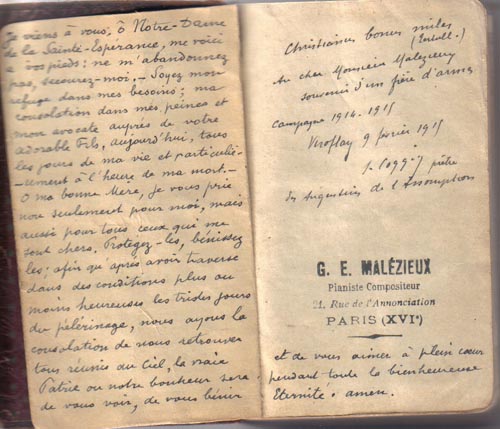 Je viens à vous, ô Notre-Dame
de la Sainte-Espérance, me voici
à vos pieds: ne m'abandonnez
pas, secourez-moi. – Soyez mon
refuge dans mes besoins; ma
consolation dans mes peines et
mon avocate auprès de votre
adorable Fils, aujourd'hui, tous
les jours de ma vie et particuliè-
-rement à l'heure de ma mort. –
O ma bonne Mère, je vous prie
non seulement pour moi, mais
aussi pour tous ceux qui me
sont chers. Protégez-les, bénissez
les; afin qu'après avoir traversé
dans des conditions plus ou
moins heureuses les tristes jours
du pèlerinage, nous ayons la
consolation de nous retrouver
tous réunis au Ciel, la vraie
Patrie où notre bonheur sera
de vous voir, de vous bénir
Christianus bonus miles
(Tertull.)
Au cher Monsieur Malezieux
souvenir d'un frère d'armes
Campagne 1914-1915
Viroflay 9 février 1915
prêtre
des Augustins de l'Assomption
G. E. MALÉZIEUX
Pianiste Compositeur
21, Rue de l'Annonciation
PARIS (XVIe)
et de vous aimer à plein cœur
pendant toute la bienheureuse
Eternité! amen.